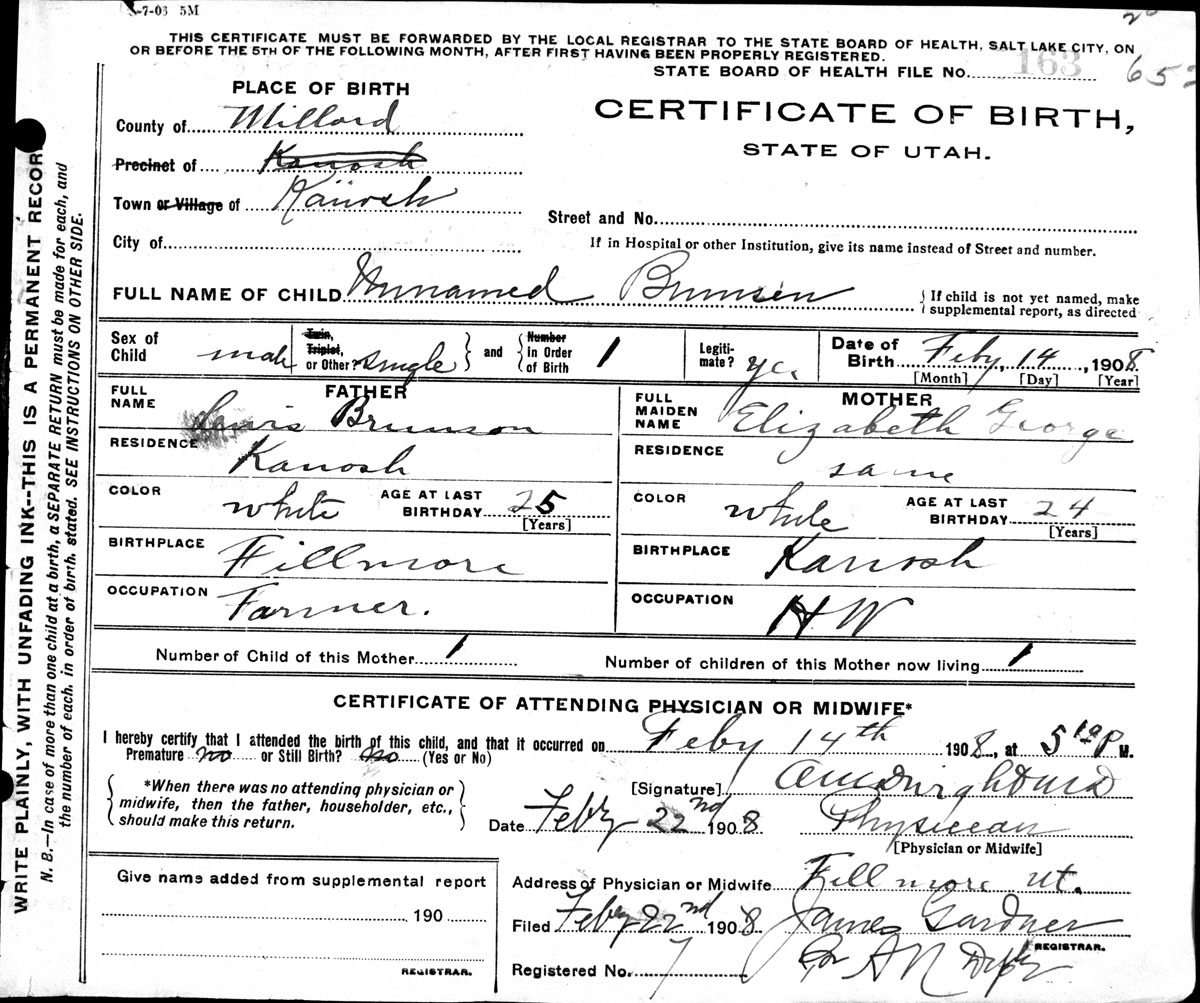 -7-03 5M
THIS CERTIFICATE MUST BE FORWARDED BY THE LOCAL REGISTRAR TO THE STATE BOARD OF HEALTH, SALT LAKE CITY, ON
OR BEFORE THE 5TH OF THE FOLLOWING MONTH, AFTER FIRST HAVING BEEN PROPERLY REGISTERED.
STATE BOARD OF HEALTH FILE No. 163
PLACE OF BIRTH
CERTIFICATE OF BIRTH,
STATE OF UTAH.
County of Millard
Precinct of Kanosh
Town or Village of Kanosh
Street and No.
City of
If in Hospital or other Institution, give its name instead of Street and number.
FULL NAME OF CHILD Unnamed Brunson
If child is not yet named, make
supplemental report, as directed
Sex of Child male
Twin, Triplet, or Other? single
and Number in Order of Birth 1
Legiti-mate? yes
Date of Birth Feby 14, 1908
[Month] [Day] [Year]
FATHER
FULL NAME Lewis Brunson
RESIDENCE Kanosh
COLOR white AGE AT LAST BIRTHDAY 25
[Years]
BIRTHPLACE Fillmore
OCCUPATION Farmer.
MOTHER
FULL MAIDEN NAME Elizabeth George
RESIDENCE same
COLOR white AGE AT LAST BIRTHDAY 24
[Years]
BIRTHPLACE Kanosh
OCCUPATION HW
Number of Child of this Mother 1
Number of children of this Mother now living 1
CERTIFICATE OF ATTENDING PHYSICIAN OR MIDWIFE*
I hereby certify that I attended the birth of this child, and that it occurred on Feby 14th 1908, at 5 P M.
Premature no or Still Birth? no (Yes or No)
*When there was no attending physician or
midwife, then the father, householder, etc.,
should make this return.
[Signature]
Date Feby 22nd 1908 Physician
[Physician or Midwife]
Give name added from supplemental report
190
REGISTRAR.
Address of Physician or Midwife Fillmore Ut.
Filed Feby 22nd 1908 James Gardner
REGISTRAR.
Registered No. 7
WRITE PLAINLY, WITH UNFADING INK--THIS IS A PERMANENT RECORD
N. B.—In case of more than one child at a birth, a SEPARATE RETURN must be made for each, and
the number of each, in order of birth, stated. SEE INSTRUCTIONS ON OTHER SIDE.